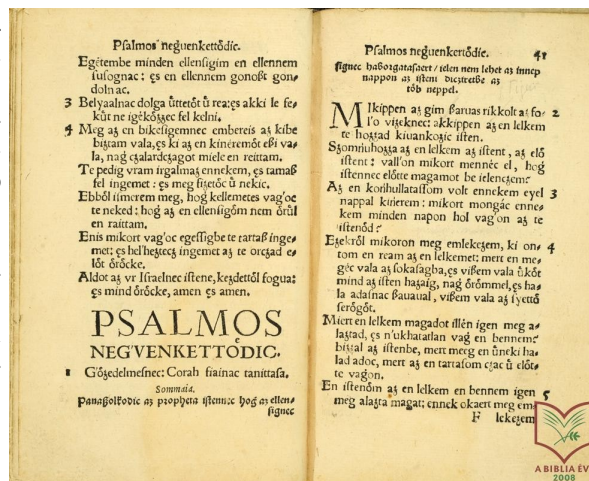 Psalmos neguenkettődic.
Egetembe minden ellensigim en ellennem
susognac: es en ellennem gonoßt gon-
dolnac.
3 Belyaalnac dolga üttetőt ű rea: es akki le fe-
küt ne igekőzzec fel kelni.
4 Meg az en bikesigemnec embereis az kibe
biztam vala, es ki az en kineremőt eßi va-
la, nag czalardzagot miele en reittam.
Te pedig vram irgalmaz ennekem, es tamaß
fel ingemet: es meg fizetőc ű nekic.
Ebből ismerem meg, hog kellemetes vag'oc
te neked: hog az en ellensigőm nem őrűl
en raittam.
Enis mikort vag'oc egessigbe te tartaß inge-
met: es hel'heztecz ingemet az te orczad e-
lőt őrőcke.
Aldot az vr Israelnec istene, kezdettől fogua:
es mind őrőcke, amen es amen.
PSALMOS
NEG'VENKETTŐDIC.
1 G'őzedelmesnec: Corah fiainac tanittasa.
Sommaia.
Panaßolkodic az propheta istennec hog az ellen-
signec
Psalmos neguenkettődic. 41
signec haborgatasaert / ielen nem lehet az innep
nappon az isteni dicziretbe az
tőb neppel.
MIkippen az gim ßaruas rikkolt az fo- 2
l'o vizeknec: akkippen az en lelkem
te hozzad kiuankozic isten.
Szomiuhozza az en lelkem az istent, az elő
istent: vall'on mikort mennec el, hog
istennec előtte magamot be ielenczem?
Az en korihullatassom volt ennekem eyel 3
nappal kinerem: mikort mongac enne-
kem minden napon hol vag'on az te
istenőd?
Ezekről mikoron meg emlekezem, ki on- 4
tom en ream az en lelkemet: mert en me-
gec vala az sokasagba, es vißem vala űkőt
mind az isten hazaig, nag őrőmmel, es ha-
la adasnac ßauaual, vißem vala az
serőgőt.
Miert en lelkem magadot illen igen meg a-
laztad, es n'ukhatatlan vag en bennem?
bizzal az istenbe, mert merg en űneki ha-
lad adoc, mert az en tartasom czac ű előt-
te vagon.
En istenőm az en lelkem en bennem igen 5
meg alazta magat: ennek okaert meg em-
F lekezem
A BIBLIA ÉV
2008